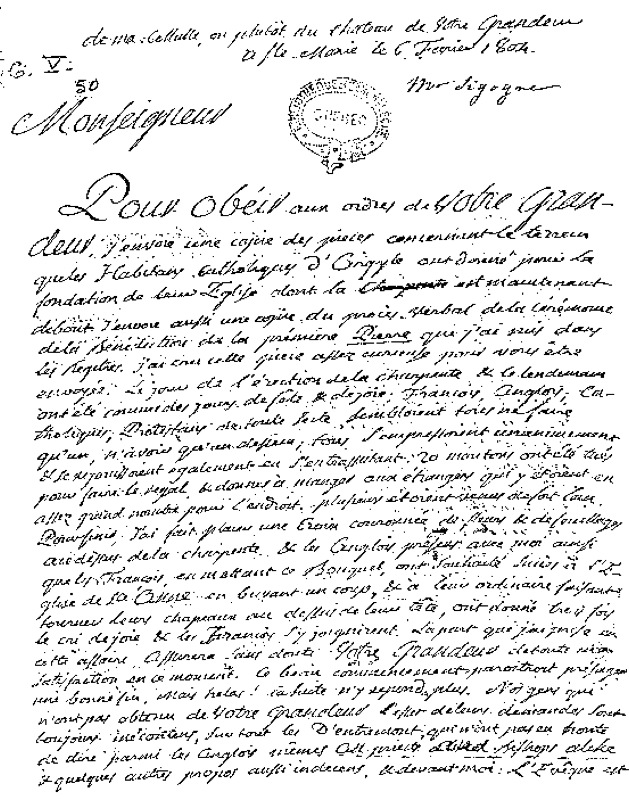 de ma: Cellule, ou plutôt du Château de Votre Grandeur
à Ste Marie le 6 Fevrier 1804
G. V:
50
Mr Sigogne
Monseigneur
QUEBEC
Pour obéir aux ordres de Votre Gran-
deur, J'envoie une copie des pieces concernant le terrein
que les Habitans Catholiques d'Argyle ont donné pour la
fondation de leur Eglise dont la Charpente est maintenant
debout. J'envoie aussi une copie du procès verbal de la Cérémonie
de la Bénédiction de la première Pierre que j'ai mis dans
les Regîtres. J'ai cru cette piece assez curieuse pour vous être
envoyée. Le jour de l'érection de la charpente & le lendemain
ont été comme des jours de fête & de joie. François, Anglois, Ca-
tholiques, Protestans de toute secte sembloient tous ne faire
qu'un, n'avoir qu'un dessein; tous s'empressoient unanimement
& se rejouissoient également en s'entrassistant. 20 moutons ont été tués
pour faire le regal, & donner à manger aux étrangers qui y étoient en
assez grand nombre pour l'endroit. plusieurs étoient venus de fort loin
Pour finir J'ai fait placer une Croix couronnée de fleurs & de feuillages
au dessus de la charpente. & les Anglois présens avec moi aussi
que les François, en mettant ce Bouquet, ont souhaité succès à l'E-
glise de Ste Anne en buvant un coup, & à leur ordinaire faisant
tourner leurs chapeaux au dessus de leur tête, ont donné trois fois
le cri de joie & les François s'y joignirent. La part que j'ai prise en
cette affaire assurera sans doute Votre Grandeur de toute mon
satisfaction en ce moment. Ce beau commencement paroîtroit présager
une bonne fin, mais helas! la suite n'y répond plus. Nos gens qui
n'ont pas obtenu de Votre Grandeur l'effet de leurs demandes sont
toujours mécontens, sur tout les D'entremont, qui n'ont pas eu honte
de dire parmi les Anglois mêmes
& quelques autres propos aussi indecens, & devant moi: L'Evêque est